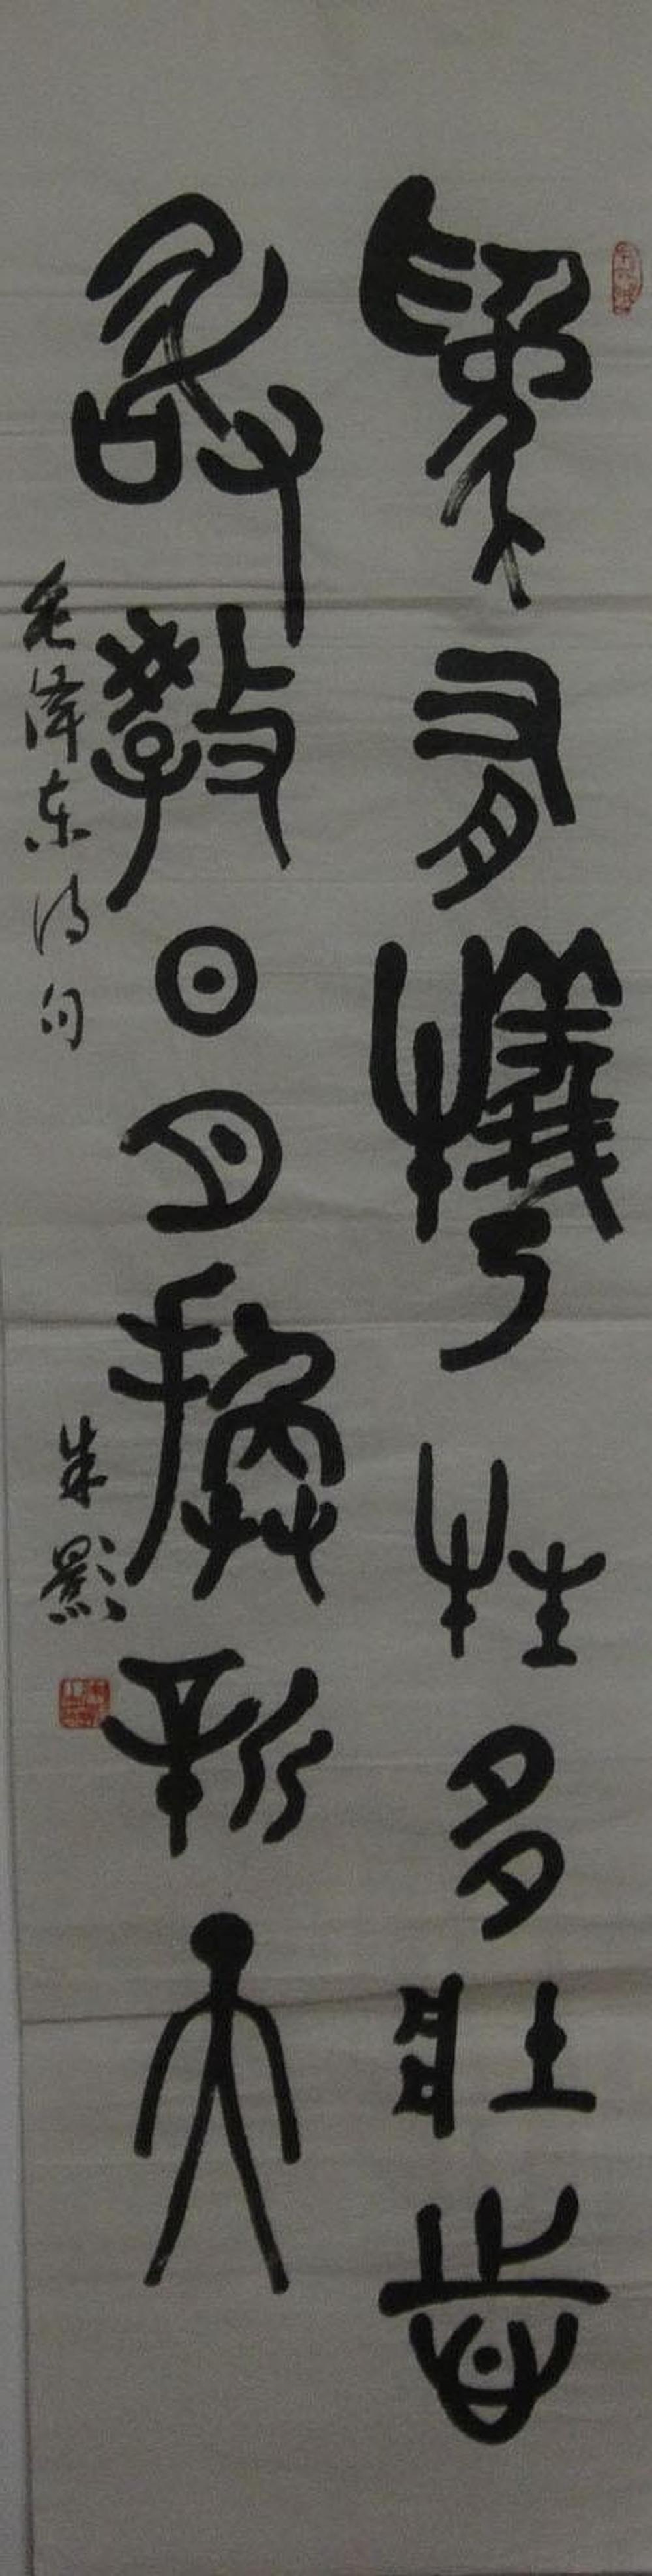 為有犧牲多壯志
敢教日月換新天
毛泽东诗句
朱影